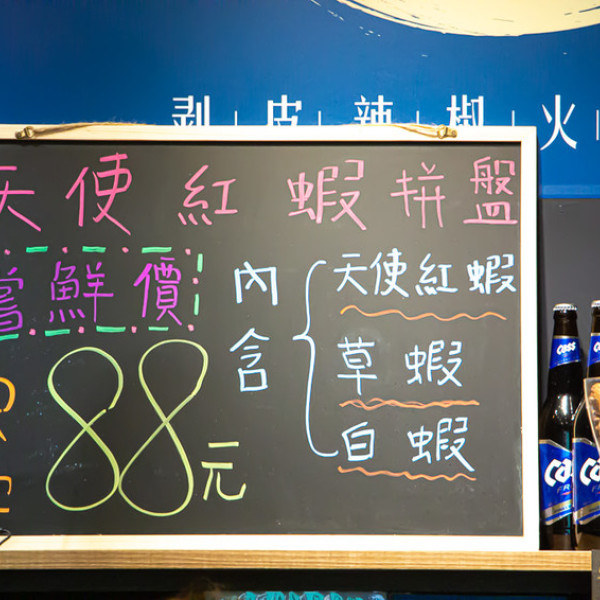 剥皮辣椒火
天使紅蝦拼盤
嚐鮮價
88元
內含
天使紅蝦
草蝦
白蝦
Cass
Cass